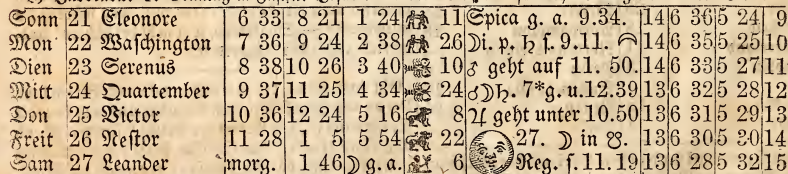 Sonn 21 Eleonore 6 33 8 21 1 24 11 Spica g. a. 9.34. 14 6 36 5 24 9
Mon 22 Waſchington 7 36 9 24 2 38 26 ☽i. p. ♄ ſ. 9.11. 14 6 35 5 25 10
Dien 23 Serenus 8 38 10 26 3 40 10 ♂ geht auf 11. 50. 14 6 33 5 27 11
Mitt 24 Quartember 9 37 11 25 4 34 24 ☌☽♄. 7*g. u. 12.39 13 6 32 5 28 12
Don 25 Victor 10 36 12 24 5 16 8 ♃ geht unter 10.50 13 6 31 5 29 13
Freit 26 Neſtor 11 28 1 5 5 54 22 27. ☽ in ☋. 13 6 30 5 30 14
Sam 27 Leander morg. 1 46 ☽ g. a. 6 Reg. ſ. 11.19 13 6 28 5 32 15